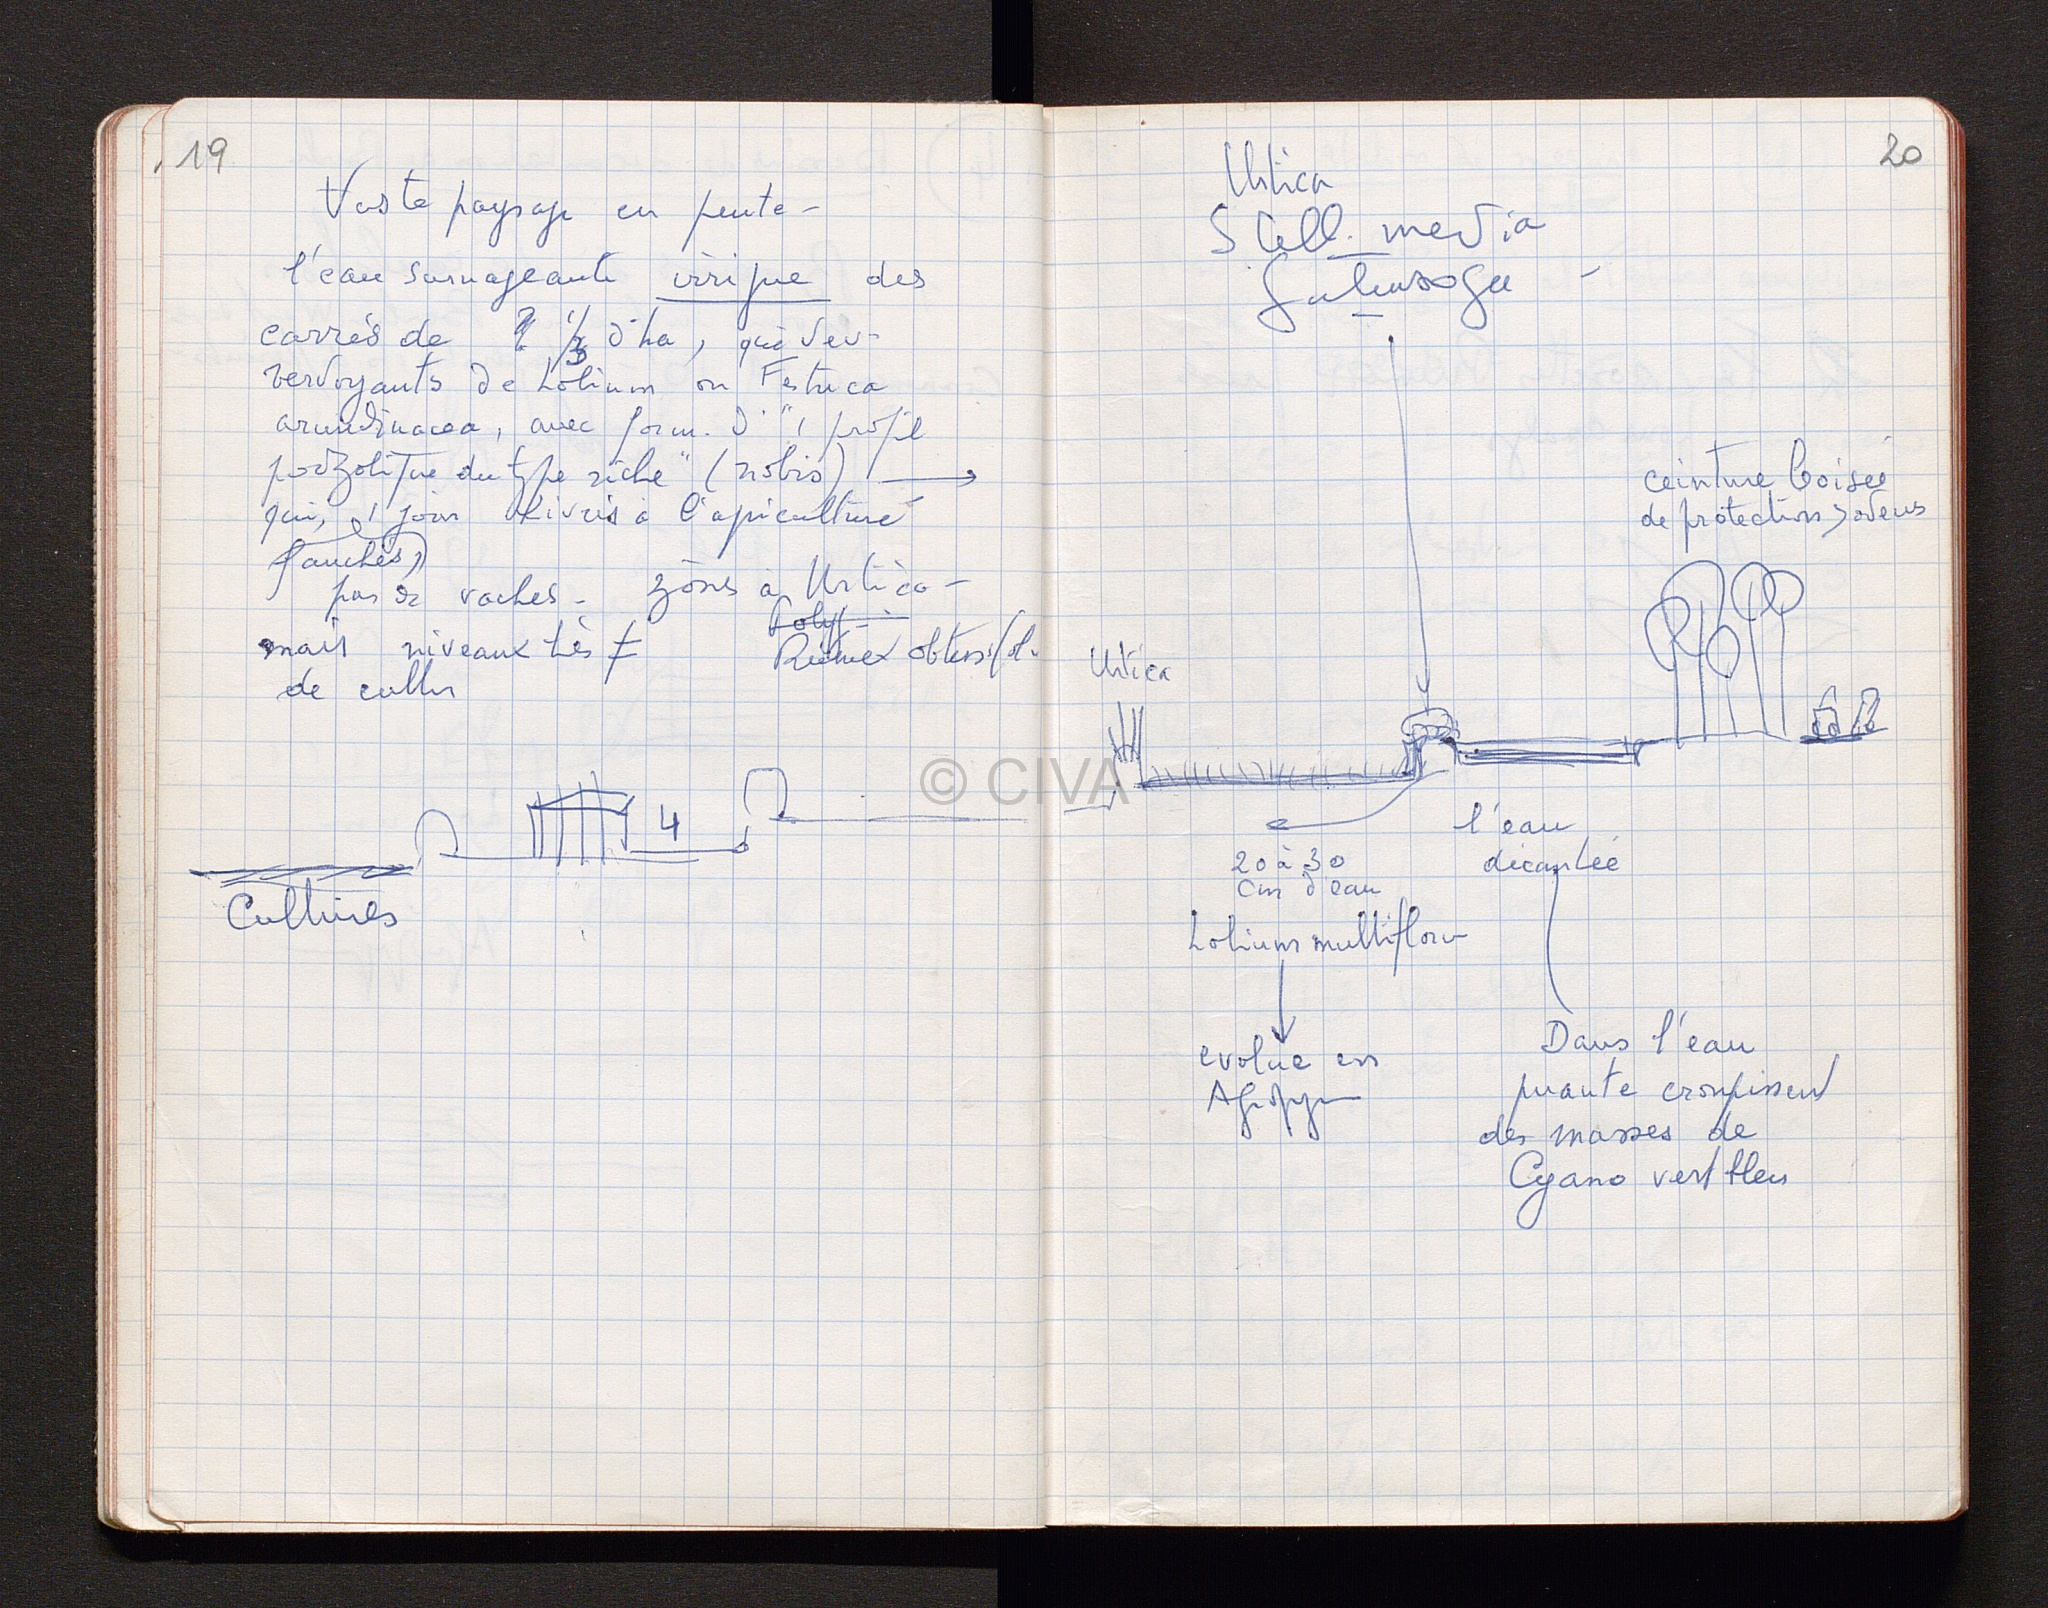 19
Vaste paysage en pente -
l'eau surnageante irrigue des
carrés de ? 1/3 d'ha, qui dev-
verdoyants de Lolium ou Festuca
arundinacea, avec form. d' "1 profil
podzolique du type riche" (nobis) →
qui, 1 jour livrés à l'apiculture
fauchés,
pas de vaches - zônes à Urtica -
Poly
mais niveaux très ≠ Rumex obtusifol.
de cult
4
Cultures
20
Urtica
Stell. media
Galinsoga -
ceinture boisée
de protection > odeurs
Urtica
© CIVA
l'eau
décantée
20 à 30
cm d'eau
Lolium multiflor
evolue en
Agropyr
Dans l'eau
puante croupissent
des masses de
Cyano vert bleu